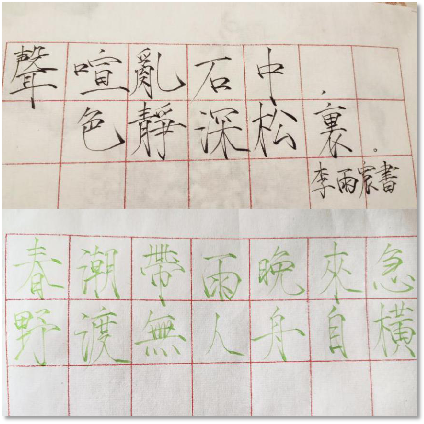 聲喧亂石中，
色靜深松裏。
李雨宸書
春潮帶雨晚來急
野渡無人舟自橫